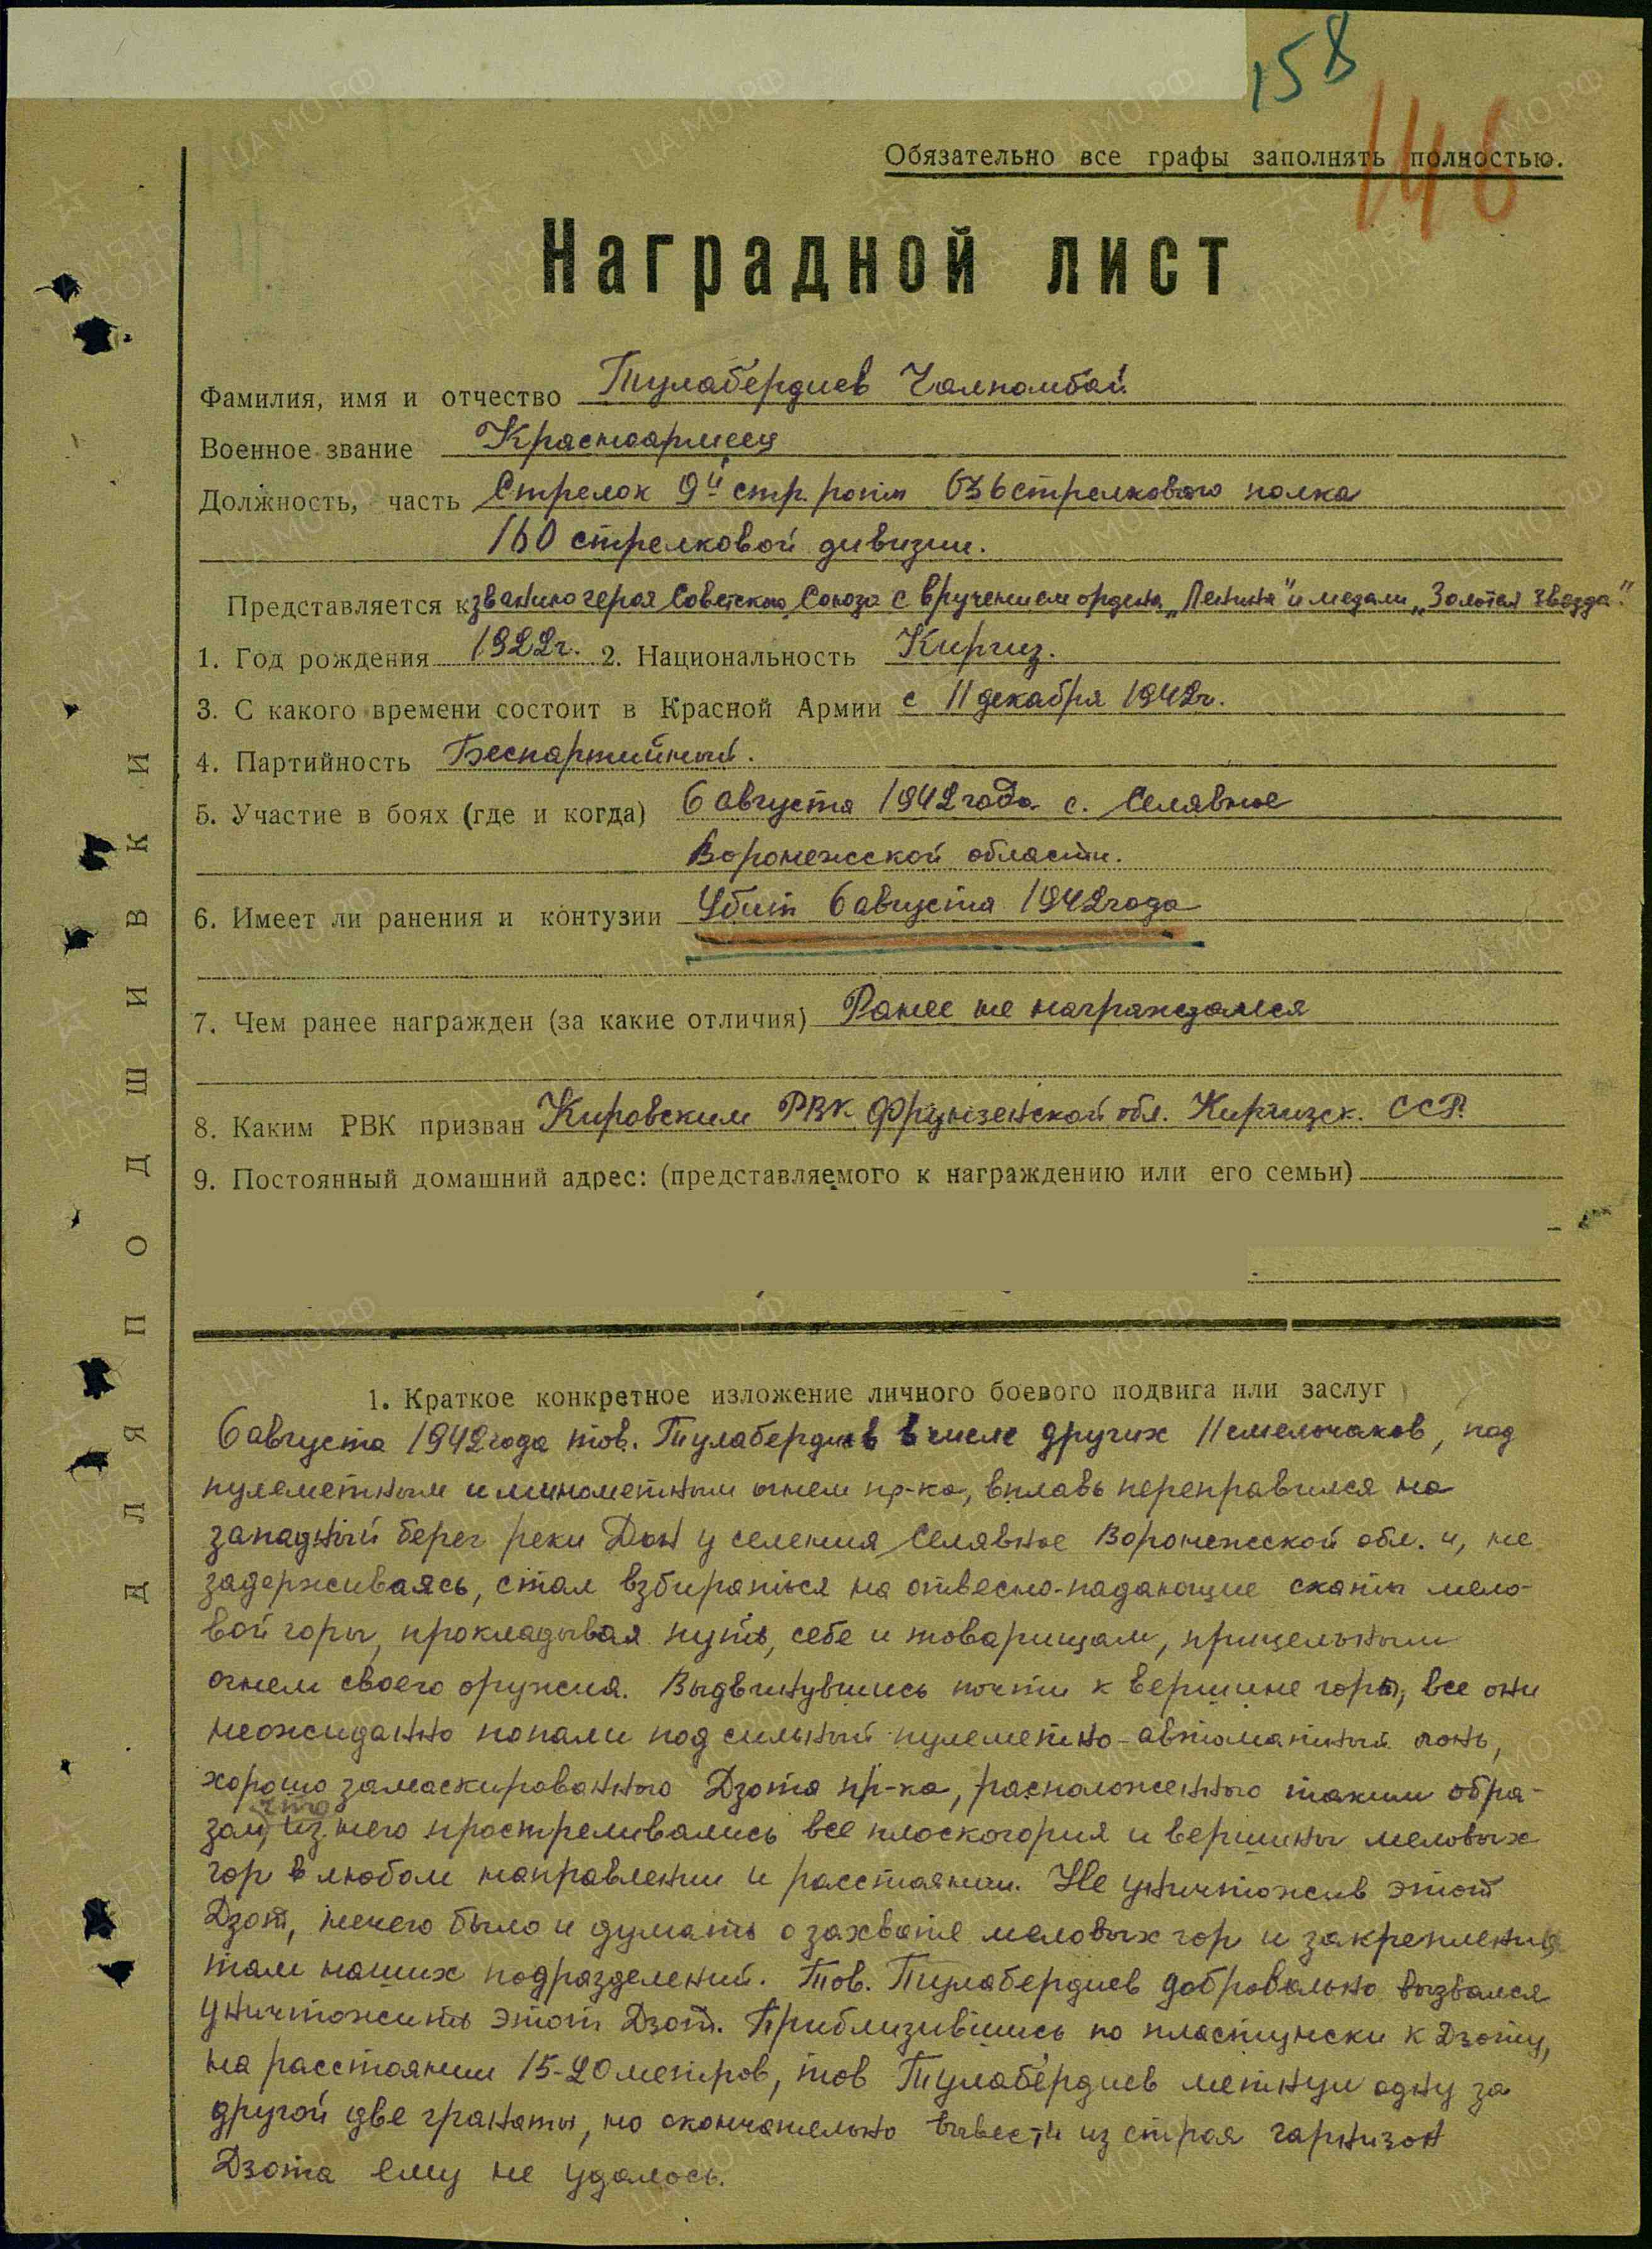 158
146
Обязательно все графы заполнять полностью.
Наградной лист
Фамилия, имя и отчество Тулабердиев Чалпомбай
Военное звание Красноармеец
Должность, часть Стрелок 9й стр. роты 636 стрелкового полка
160 стрелковой дивизии.
Представляется к званию героя Советского Союза с вручением ордена „Ленина" и медали „Золотая звезда".
1. Год рождения 1922г. 2. Национальность Киргиз.
3. С какого времени состоит в Красной Армии с 11 декабря 1942г.
4. Партийность Беспартийный.
5. Участие в боях (где и когда) 6 августа 1942 года с. Селявное
Воронежской области.
6. Имеет ли ранения и контузии Убит 6 августа 1942 года
7. Чем ранее награжден (за какие отличия) Ранее не награждался
8. Каким РВК призван Кировским РВК Фрунзенской обл. Киргизск. ССР.
9. Постоянный домашний адрес: (представляемого к награждению или его семьи)
1. Краткое конкретное изложение личного боевого подвига или заслуг
6 августа 1942 года тов. Тулабердиев в числе других 11 смельчаков, под
пулеметным и минометным огнем пр-ка, вплавь переправился на
западный берег реки Дон у селения Селявное Воронежской обл. и, не
задерживаясь, стал взбираться на отвесно-падающие скаты мело-
вой горы, прокладывая путь, себе и товарищам, прицельным
огнем своего оружия. Выдвинувшись почти к вершине горы, все они
неожиданно попали под сильный пулеметно-автоматный огонь,
хорошо замаскированного Дзота пр-ка, расположенного таким обра-
зом, что из него простреливались все плоскогория и вершины меловых
гор в любом направлении и расстоянии. Не уничтожив этот
Дзот, нечего было и думать о захвате меловых гор и закреплении
там наших подразделений. Тов. Тулабердиев добровольно вызвался
уничтожить этот Дзот. Приблизившись по пластунски к Дзоту,
на расстоянии 15-20 метров, тов Тулабердиев метнул одну за
другой две гранаты, но окончательно вывести из строя гарнизон
Дзота ему не удалось.
ДЛЯ ПОДШИВКИ
ЦА МО РФ
ПАМЯТЬ НАРОДА